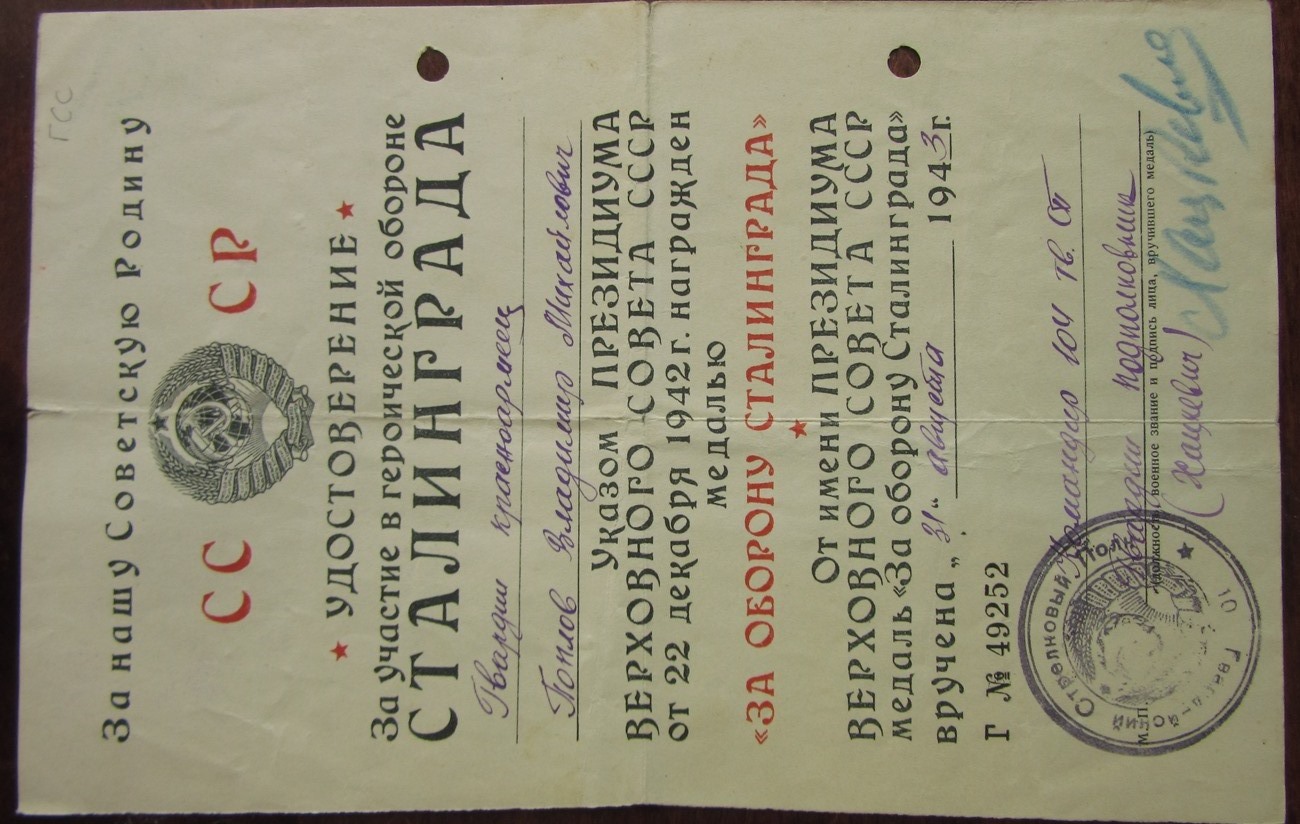 ГСС
За нашу Советскую Родину
СС СР
УДОСТОВЕРЕНИЕ
За участие в героической обороне
СТАЛИНГРАДА
Гвардии красноармеец
Попов Владимир Михайлович
Указом ПРЕЗИДИУМА
ВЕРХОВНОГО СОВЕТА СССР
от 22 декабря 1942 г. награжден
медалью
«ЗА ОБОРОНУ СТАЛИНГРАДА»
От имени ПРЕЗИДИУМА
ВЕРХОВНОГО СОВЕТА СССР
медаль «За оборону Сталинграда»
вручена „31“ августа 1943 г.
Г № 49252
Командир 104 гв. СП
Гвардии подполковник
М.П.
(должность, военное звание и подпись лица, вручившего медаль)
Стрелковый